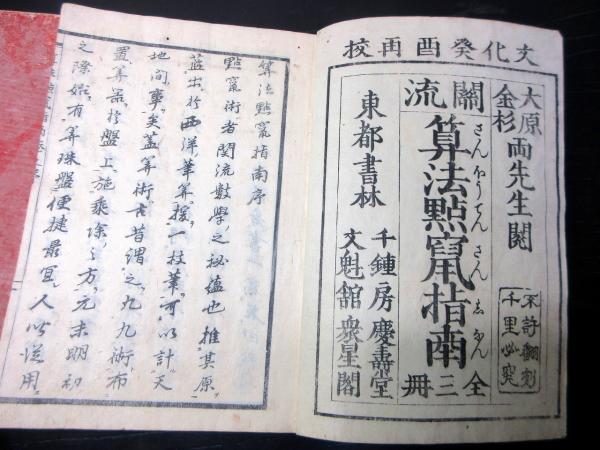 文化癸酉再校
大原
金杉
両先生閲
不許翻刻
千里必究
關流
さんはうてんさんしなん
算法點竄指南
全三冊
東都書林
千鍾房慶壽堂
文魁舘衆星閣
算法點竄指南序
點竄術者関流數學之秘蘊也推其原
藍出於西洋筆算援一柱筆可以計天
地間事矣蓋算術古昔謂之九九術布
置算器於盤上施乘除之方元末明初
之際始有算珠盤便捷最宜人以用